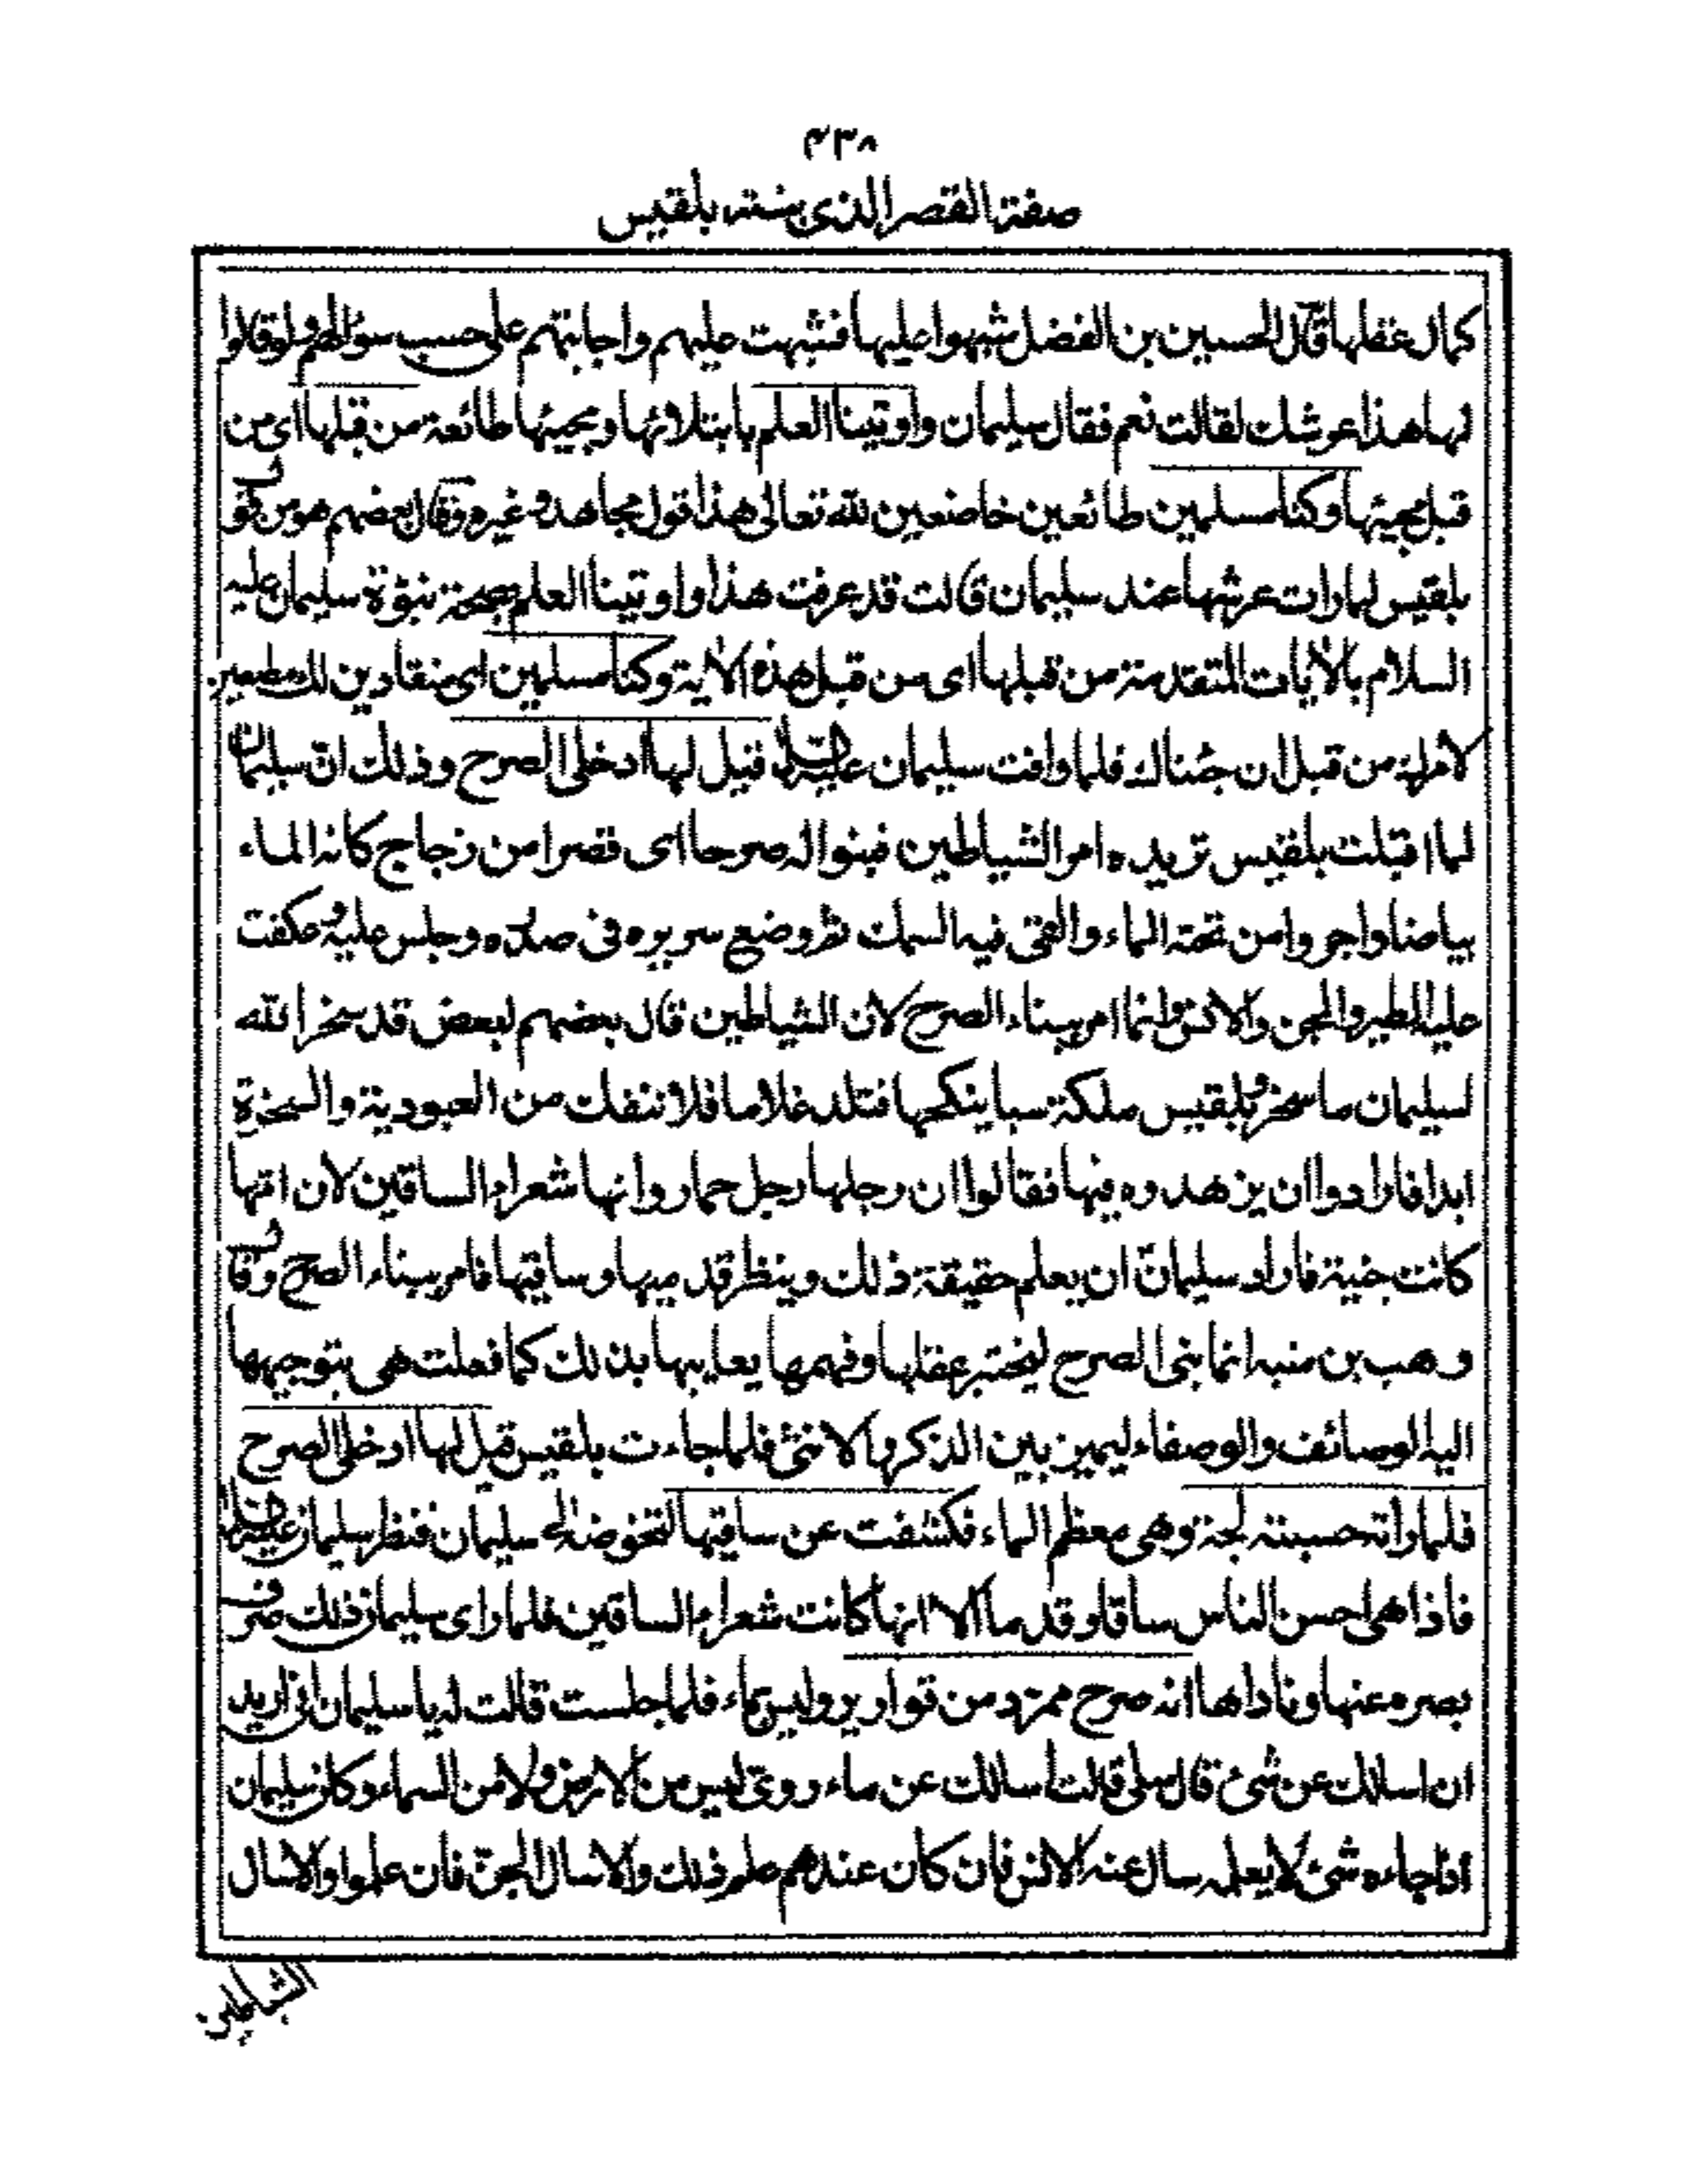 ٤٣٨
صفة القصر الذى بنته بلقيس
كمال عقلها قال الحسين بن الفضل شبهوا عليها فشبهت عليهم واجابتهم على حسب سؤالهم ولو قالوا
لها هذا عرشك لقالت نعم فقال سليمان واوتينا العلم بابتلائها ومجيئها طائعة من قبلها اى من
قبل مجيئها وكنا مسلمين طائعين خاضعين لله تعالى هذا قول مجاهد وغيره وقال بعضهم هو من قول
بلقيس لما رات عرشها عند سليمان قالت قد عرفت هذا واوتينا العلم بصحة نبوة سليمان عليه
السلام بالايات المتقدمة من قبلها اى من قبل هذه الاية وكنا مسلمين اى منقادين لك مطيعين
لامرك من قبل ان جئناك فلما وافت سليمان عليه السلام قيل لها ادخلى الصرح وذلك ان سليمان
لما اقبلت بلقيس تريده امر الشياطين فبنوا له صرحا اى قصرا من زجاج كانه الماء
بياضا واجروا من تحته الماء والقى فيه السمك ثم وضع سريره فى صدره وجلس عليه وعكفت
عليه الطير والجن والانس وانما امر ببناء الصرح لان الشياطين قال بعضهم لبعض قد سخر الله
لسليمان ما سخر وبلقيس ملكة سبا ينكحها فتلد غلاما فلا ننفك من العبودية والسخرة
ابدا فارادوا ان يزهدوه فيها فقالوا ان رجلها رجل حمار وانها شعراء الساقين لان امها
كانت جنية فاراد سليمان ان يعلم حقيقة ذلك وينظر قدميها وساقيها فامر ببناء الصرح وقال
وهب بن منبه انما بنى الصرح ليختبر عقلها وفهمها يعاييها بذلك كما فعلت هى بتوجيهها
اليه الوصائف والوصفاء ليميز بين الذكر والانثى فلما جاءت بلقيس قيل لها ادخلى الصرح
فلما راته حسبته لجة وهى معظم الماء فكشفت عن ساقيها لتخوضه الى سليمان فنظر سليمان عليه السلام
فاذا هى احسن الناس ساقا وقدما الا انها كانت شعراء الساقين فلما راى سليمان ذلك صرف
بصره عنها وناداها انه صرح ممرد من قوارير وليس بماء فلما جلست قالت له يا سليمان انى اريد
ان اسالك عن شئ قال سلى قالت اسالك عن ماء روى ليس من الارض ولا من السماء وكان سليمان
اذا جاءه شئ لا يعلمه سال عنه الانس فان كان عندهم علم ذلك والا سال الجن فان علموا والا سال
الشياطين